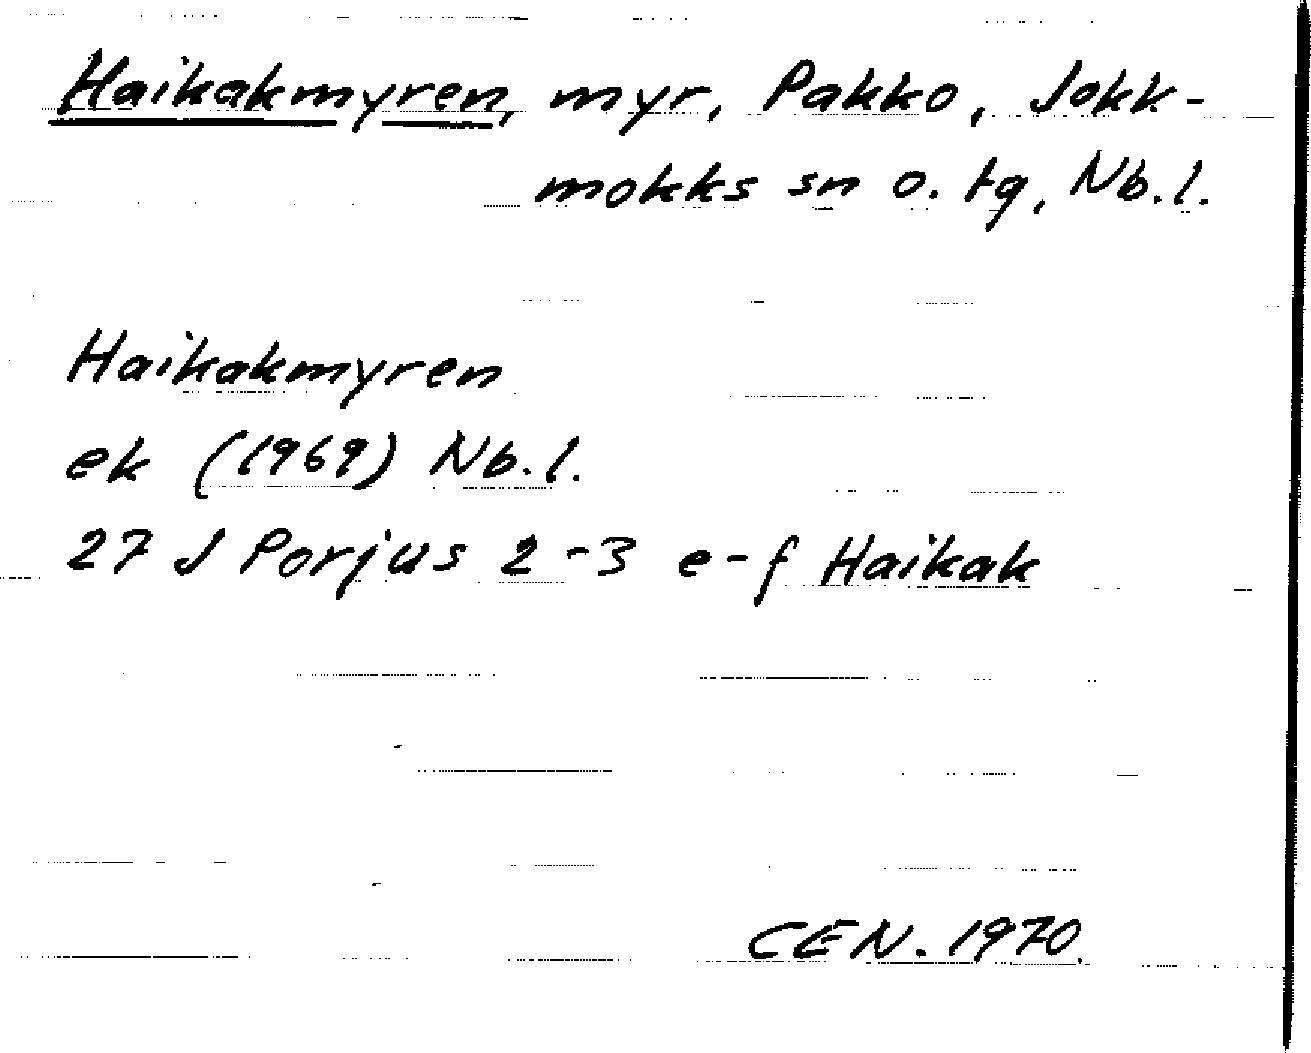 Haikakmyren, myr, Pakko, Jokk-
mokks sn o. tg, Nb.l.
Haikakmyren
ek (1969) Nb.l.
27 J Porjus 2-3 e-f Haikak
CEN. 1970.